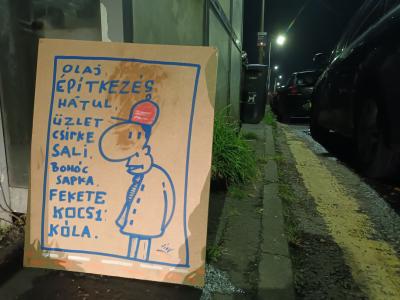 OLAJ.
ÉPÍTKEZÉS
HÁTUL.
ÜZLET
CSIRKE
SALI.
BOHÓC
SAPKA.
FEKETE
KOCSI
KÓLA.